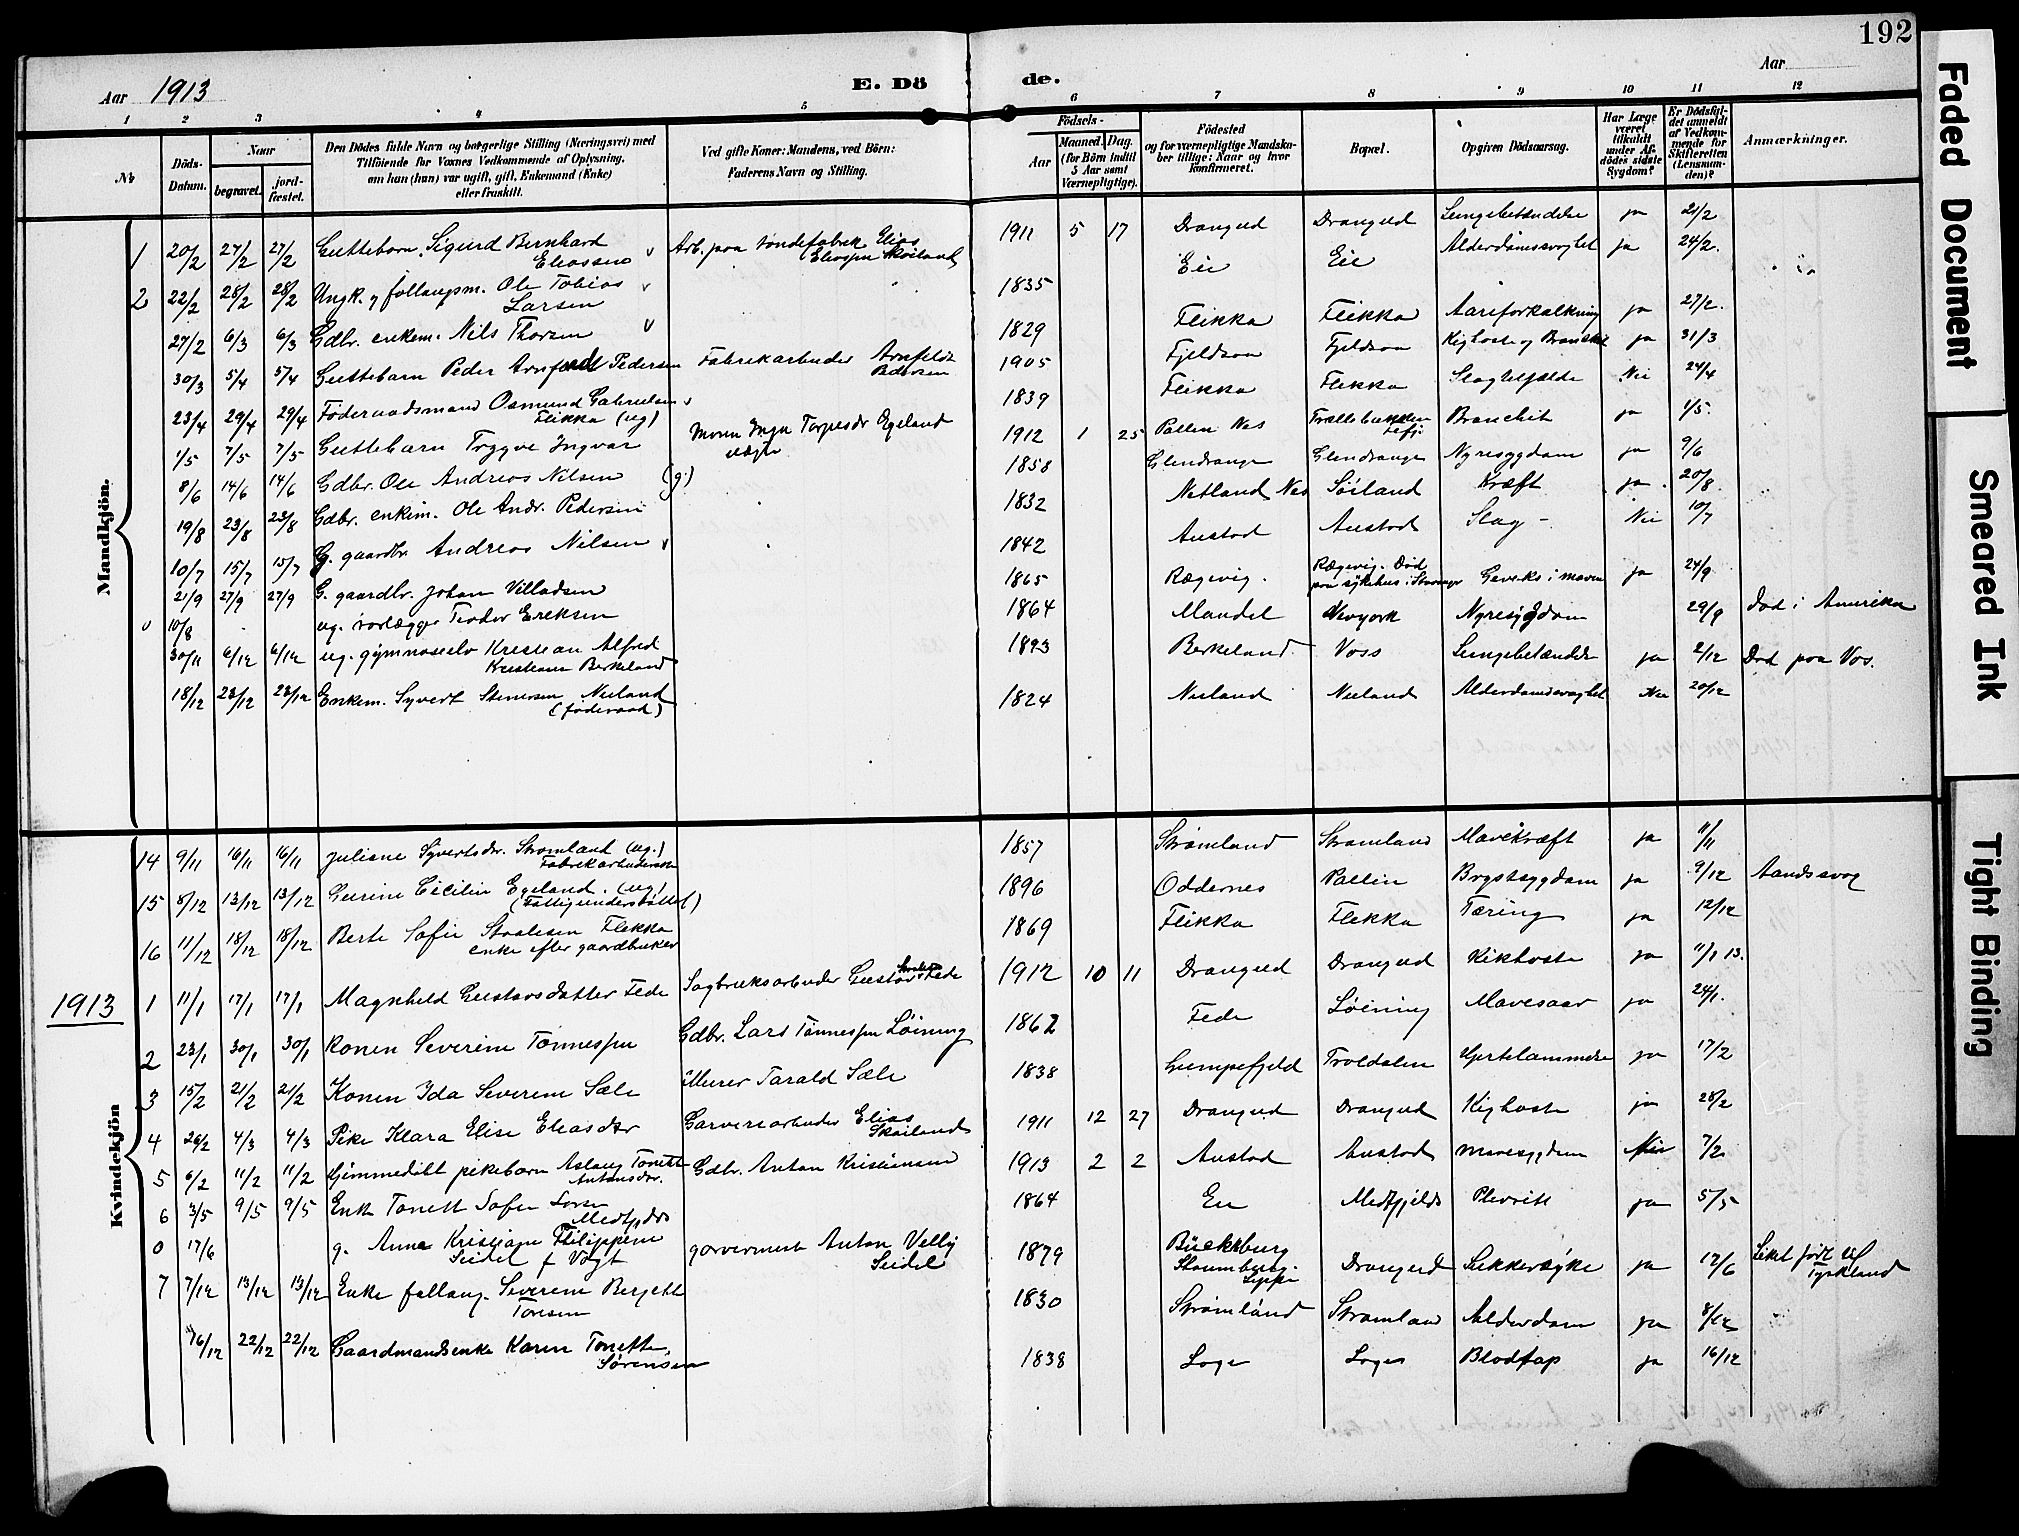 192
Aar 1913
E. Dö de.
Aar
1 2 3 4 5 6 7 8 9 10 11 12
No
Döds-Datum.
Naar
begravet.
jord-fæstet.
Den Dödes fulde Navn og borgerlige Stilling (Næringsvei) med
Tilföiende for Voxnes Vedkommende af Oplysning,
om han (hun) var ugift, gift, Enkemand (Enke)
eller fraskilt.
Ved gifte Koner: Mandens, ved Börn:
Faderens Navn og Stilling.
Födsels-
Aar
Maaned. Dag.
(for Börn indtil
5 Aar samt
Værnepligtige).
Födested
og for værnepligtige Mandska-
ber tillige: Naar og hvor
konfirmeret.
Bopæl.
Opgiven Dödsaarsag.
Har Læge
været
tilkaldt
under Af-
dödes sidste
Sygdom?
Er Dödsfal-
det anmeldt
af Vedkom-
mende for
Skifteretten
(Lensman-
den)?
Anmærkninger.
Mandkjön.
1 20/2 27/2 27/2 Guttebarn Sigurd Bernhard Eliassen Arb. paa tøndefabrik Elias Skoiland 1911 5 17 Drangeid Drangeid Lungebetændelse ja 21/2
2 22/2 28/2 28/2 Ungk. Ole Tobias Larsen 1835 Eie Eie Alderdomssvaghet ja 24/2.
27/2 6/3 6/3 Gdbr. enkem. Nils Thorsen 1829 Fleikka Fleikka Aareforkalkning ja 27/2.
30/3 5/4 5/4 Guttebarn Peder Arnfeldt Pedersen Fabrikarbeider Arnfeldt Pedersen 1905 Fjeldsaa Fjeldsaa Kighoste og ja 31/3
23/4 29/4 29/4 Føderaadsmand Osmund Gabrielsen Fleikka (ug) 1839 Fleikka Flekka Slagtilfælde Nei 24/4
1/5 7/5 7/5 Guttebarn Trygve Ingvar Egeland 1912 1 25 Pallen Nes Branchit ja 1/5.
8/6 14/6 14/6 Gdbr. Ole Andreas Nilsen (g) 1858 Glendrange Glendrange Nyresygdom ja 9/6
19/8 23/8 23/8 Gdbr. enkem. Ole Andr. Pedersen 1832 Netland Nes Søiland Kræft ja 20/8
10/7 15/7 15/7 G. gaardbr. Andreas Nilsen 1842 Austad Austad Slag - Nei 10/7
21/9 27/9 27/9 G. gaardbr. Johan Villadsen 1865 Rægevig. Rægevig. Død paa sykehus i Stavanger i maven ja 24/9
10/8 ug. rørlægger Teodor Eriksen 1864 Mandal Newyork Nyresygdom 29/9 Død i Amerika
30/11 6/12 6/12 ug. gymnasieelev Kristian Alfred Kristiansen Berkeland 1893 Berkeland. Voss Lungebetændelse ja 2/12 Død paa Vos.
18/12 23/12 23/12 Enkem. Syvert Stenersen Neuland (føderaad) 1824 Neuland Neuland Alderdomssvaghet Nei 20/12
Kvindekjön
14 9/11 16/11 16/11 Juliane Syvertsdr. Strømland (ug.) Fabrikarbeiderske 1857 Strømland Strømland Mavekræft ja 11/11
15 8/12 13/12 13/12 Gurine Cecilie Egeland. (ug) (Fattigunderstøttet) 1896 Oddernes Pallen Brystsygdom ja 9/12 Aandssvag
16 11/12 18/12 18/12 Berte Sofie Staalesen Flekka enke efter gaardbruker 1869 Fleikka Flekka Tæring ja 12/12
1913
1 11/1 17/1 17/1 Magnhild Gustavsdatter Fede Sagbruksarbeider Gustav Fede 1912 10 11 Drangeid Drangeid Kikhoste ja 11/1 13.
2 23/1 30/1 30/1 Konen Severine Tønnesen Gdbr. Lars Tønnesen Løining 1862 Fede Løining Mavesaar ja 24/1.
3 15/2 21/2 21/2 Konen Ida Severine Sæle Murer Tarald Sæle 1838 Lumpefjeld Troldalen Hjertelammelse ja 17/2
4 26/2 4/3 4/3 Pike Klara Elise Eliasdtr Garveriarbeider Elias Skoiland 1911 12 27 Drangeid Drangeid Kighoste ja 28/2
5 6/2 11/2 11/2 Hjemmedøbt pikebarn Aslaug Tonette Antonsdr. Gdbr. Anton Kristiansen 1913 2 2 Austad Austad mavesygdom Nei 7/2
6 3/5 9/5 9/5 Enke Tonett Sofie Medfjeld 1864 Eie Medfjeld Plevrit ja 5/5
0 17/6 g. Anne Kristiane Filippine Seidel f Vogt garvermest Anton Seidel 1879 Bückkburg Lippe Drangeid Sukkersyke ja 17/6 Liket ført til Tyskland
7 7/12 13/12 13/12 Enke Severine Bergitte Tønesen 1830 Strømland Strømland Alderdom ja 8/12
16/12 22/12 22/12 Gaardmandsenke Karen Tonette Sørensen 1838 Loge Loge Blodtap ja 16/12
Faded Document
Smeared Ink
Tight Binding